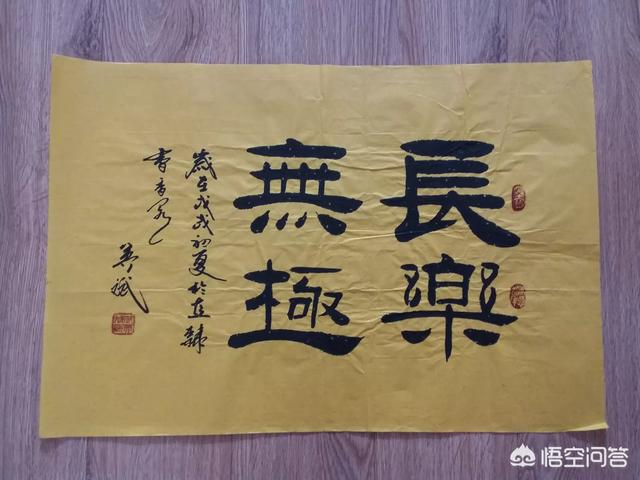 長樂
無極
歲在戊戌初夏於古韓
書香
悟空问答